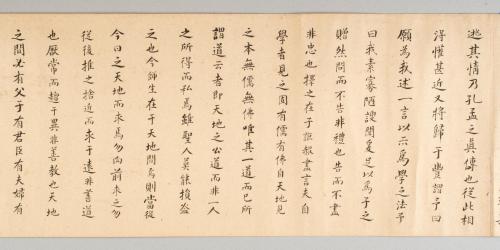 逃其情乃孔孟之真傳也從此相
得懽甚近又將歸于豐謂予曰
願為敘述一言以示為學之法予
曰我素寡陋謏聞曷足以為子之
贈然問而不告非禮也告而不盡
非忠也擇之在子詎敢盡言夫自
學者見之固有儒有佛自天地見
之本無儒無佛唯其一道而已所
謂道云者即天地之公道而非一人
之所得而私焉雖聖人莫能損益
之也今師生在于天地間焉則當從
今日之天地而求焉勿向前求之勿
從後推之捨近而求于遠非善道
也厭常而趨于異非善教也天地
之間必有父子有君臣有夫婦有